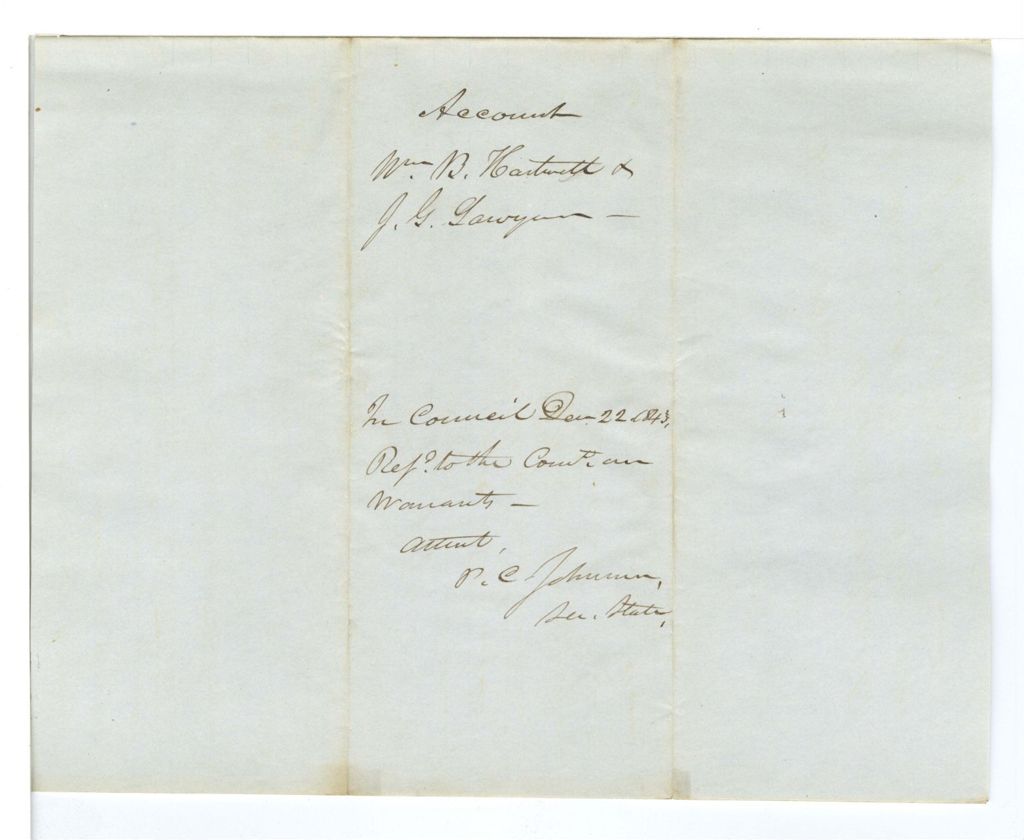 Account
Wm. B. Hartwell &
J. G. Sawyer —
In Council Dec. 22 1843,
Refd. to the Comte. on
Warrants —
Attest,
P. C. Johnson,
Sec. State,